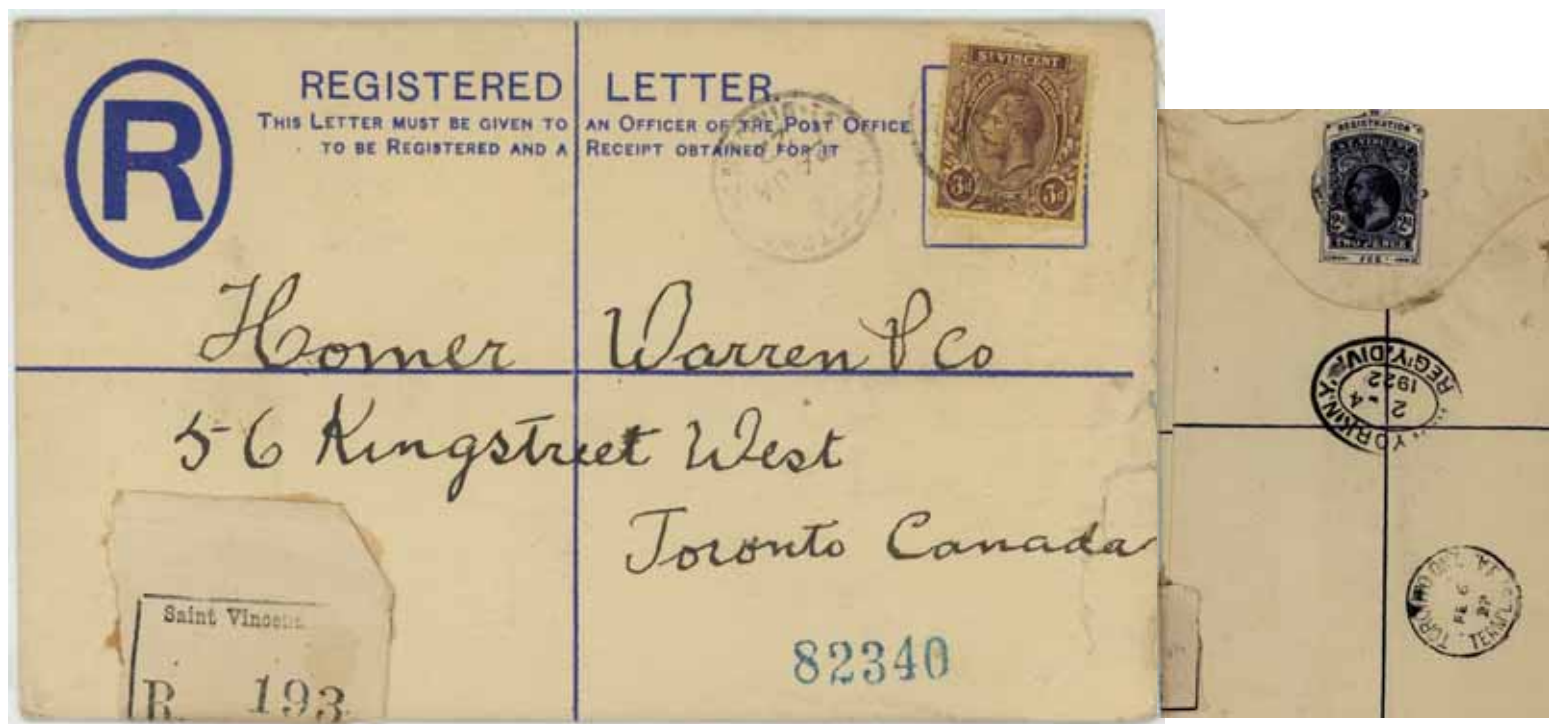 R
REGISTERED LETTER.
THIS LETTER MUST BE GIVEN TO AN OFFICER OF THE POST OFFICE
TO BE REGISTERED AND A RECEIPT OBTAINED FOR IT
ST VINCENT
3d 3d
Homer Warren & Co
56 Kingstreet West
Toronto Canada
Saint Vincent
R 193
82340
REGISTRATION
ST. VINCENT
2d 2d
TWO PENCE
FEE
YORK, N.Y. REG'Y. DIV.
2-4
1922
FE 6
22